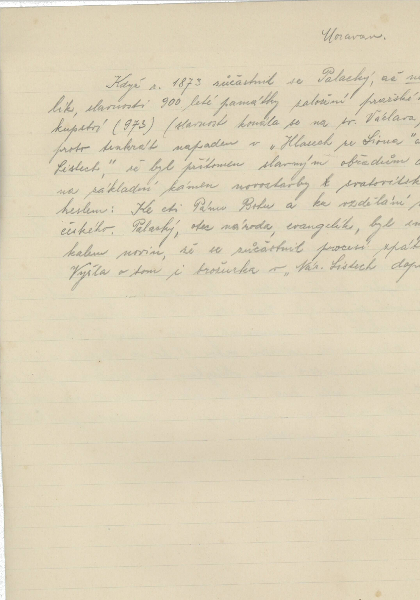 Moravan.
Když r. 1873 zúčastnil se Palacký, ač
lík, slavnosti 900 leté památky založení pražské
kupství (973) (slavnost konala se na sv. Václava
proto tenkrát napaden v „Hlasech ze Siona"
Listech," že byl přítomen slavným obřadům
na základní kámen novostavby k svatovítsk
heslem: Ke cti Pánu Bohu a ku vzdělání
českého. Palacký, otec národa, evangelík, byl
kalem novin, že se zúčastnil procesí
Vyšla o tom i brožurka v „Nár. Listech